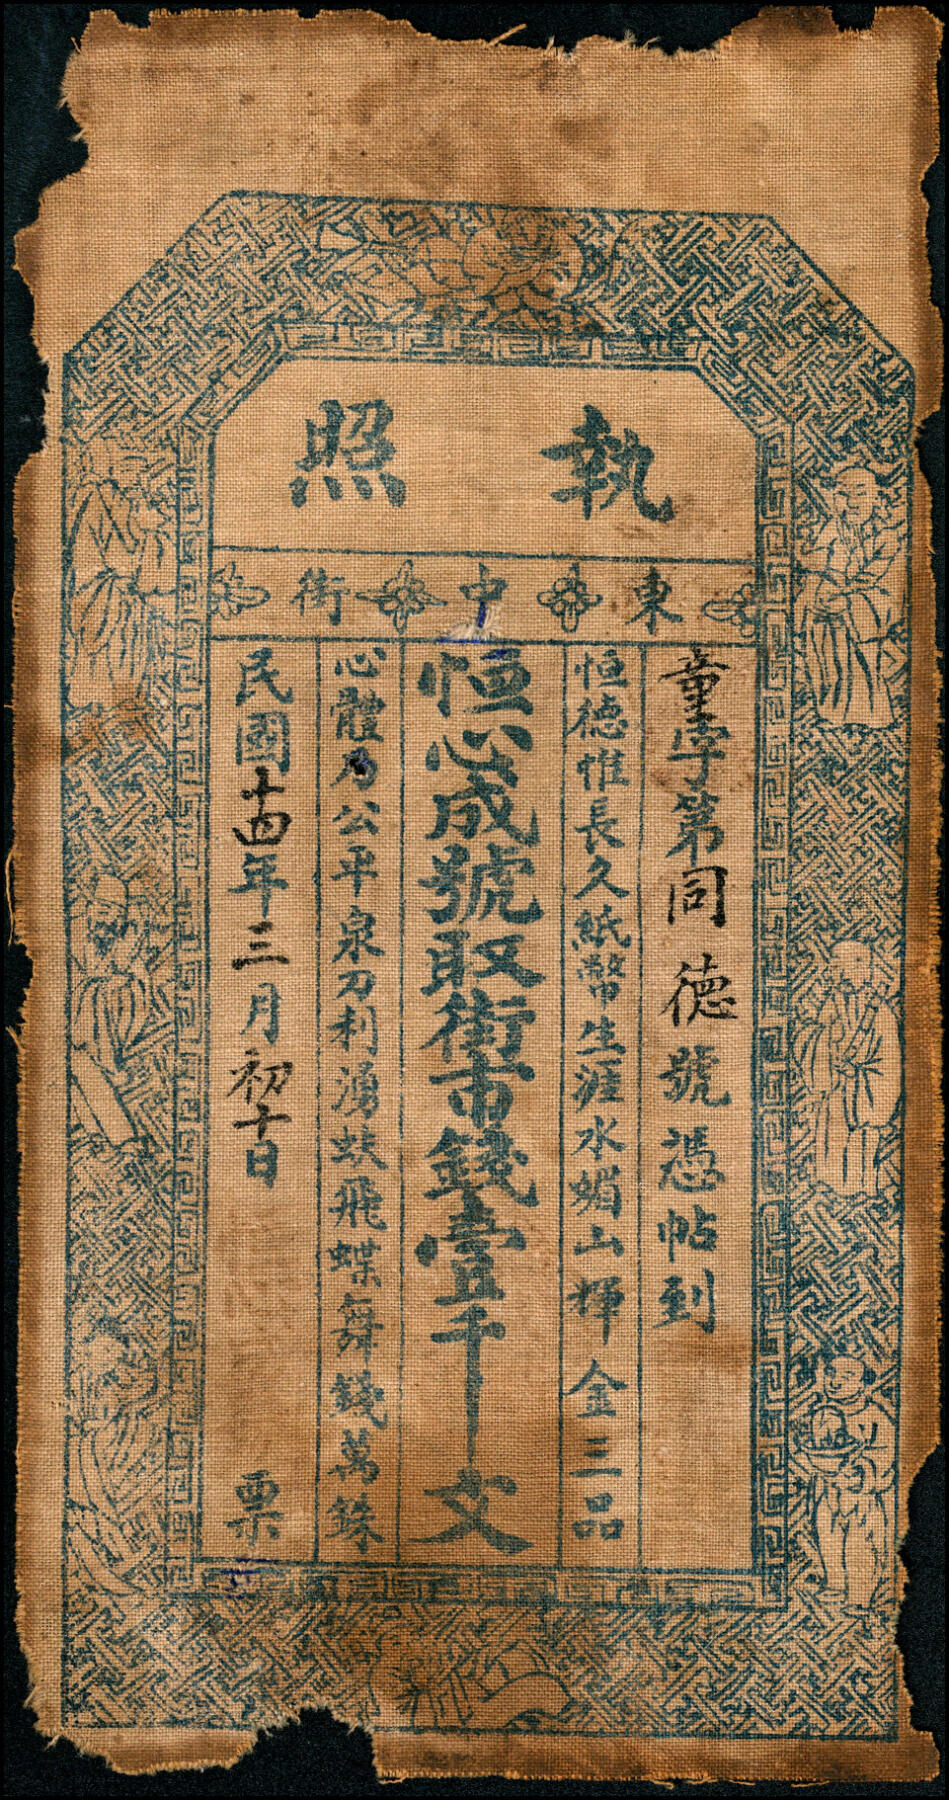 執照
東中街
童字第同德號憑帖到
恒德惟長久紙幣生涯水媚山輝金三品
恒心成號取街市錢壹千文
心體乃公平泉刀利湧蚨飛蝶舞錢萬銖
民國十四年三月初十日 票